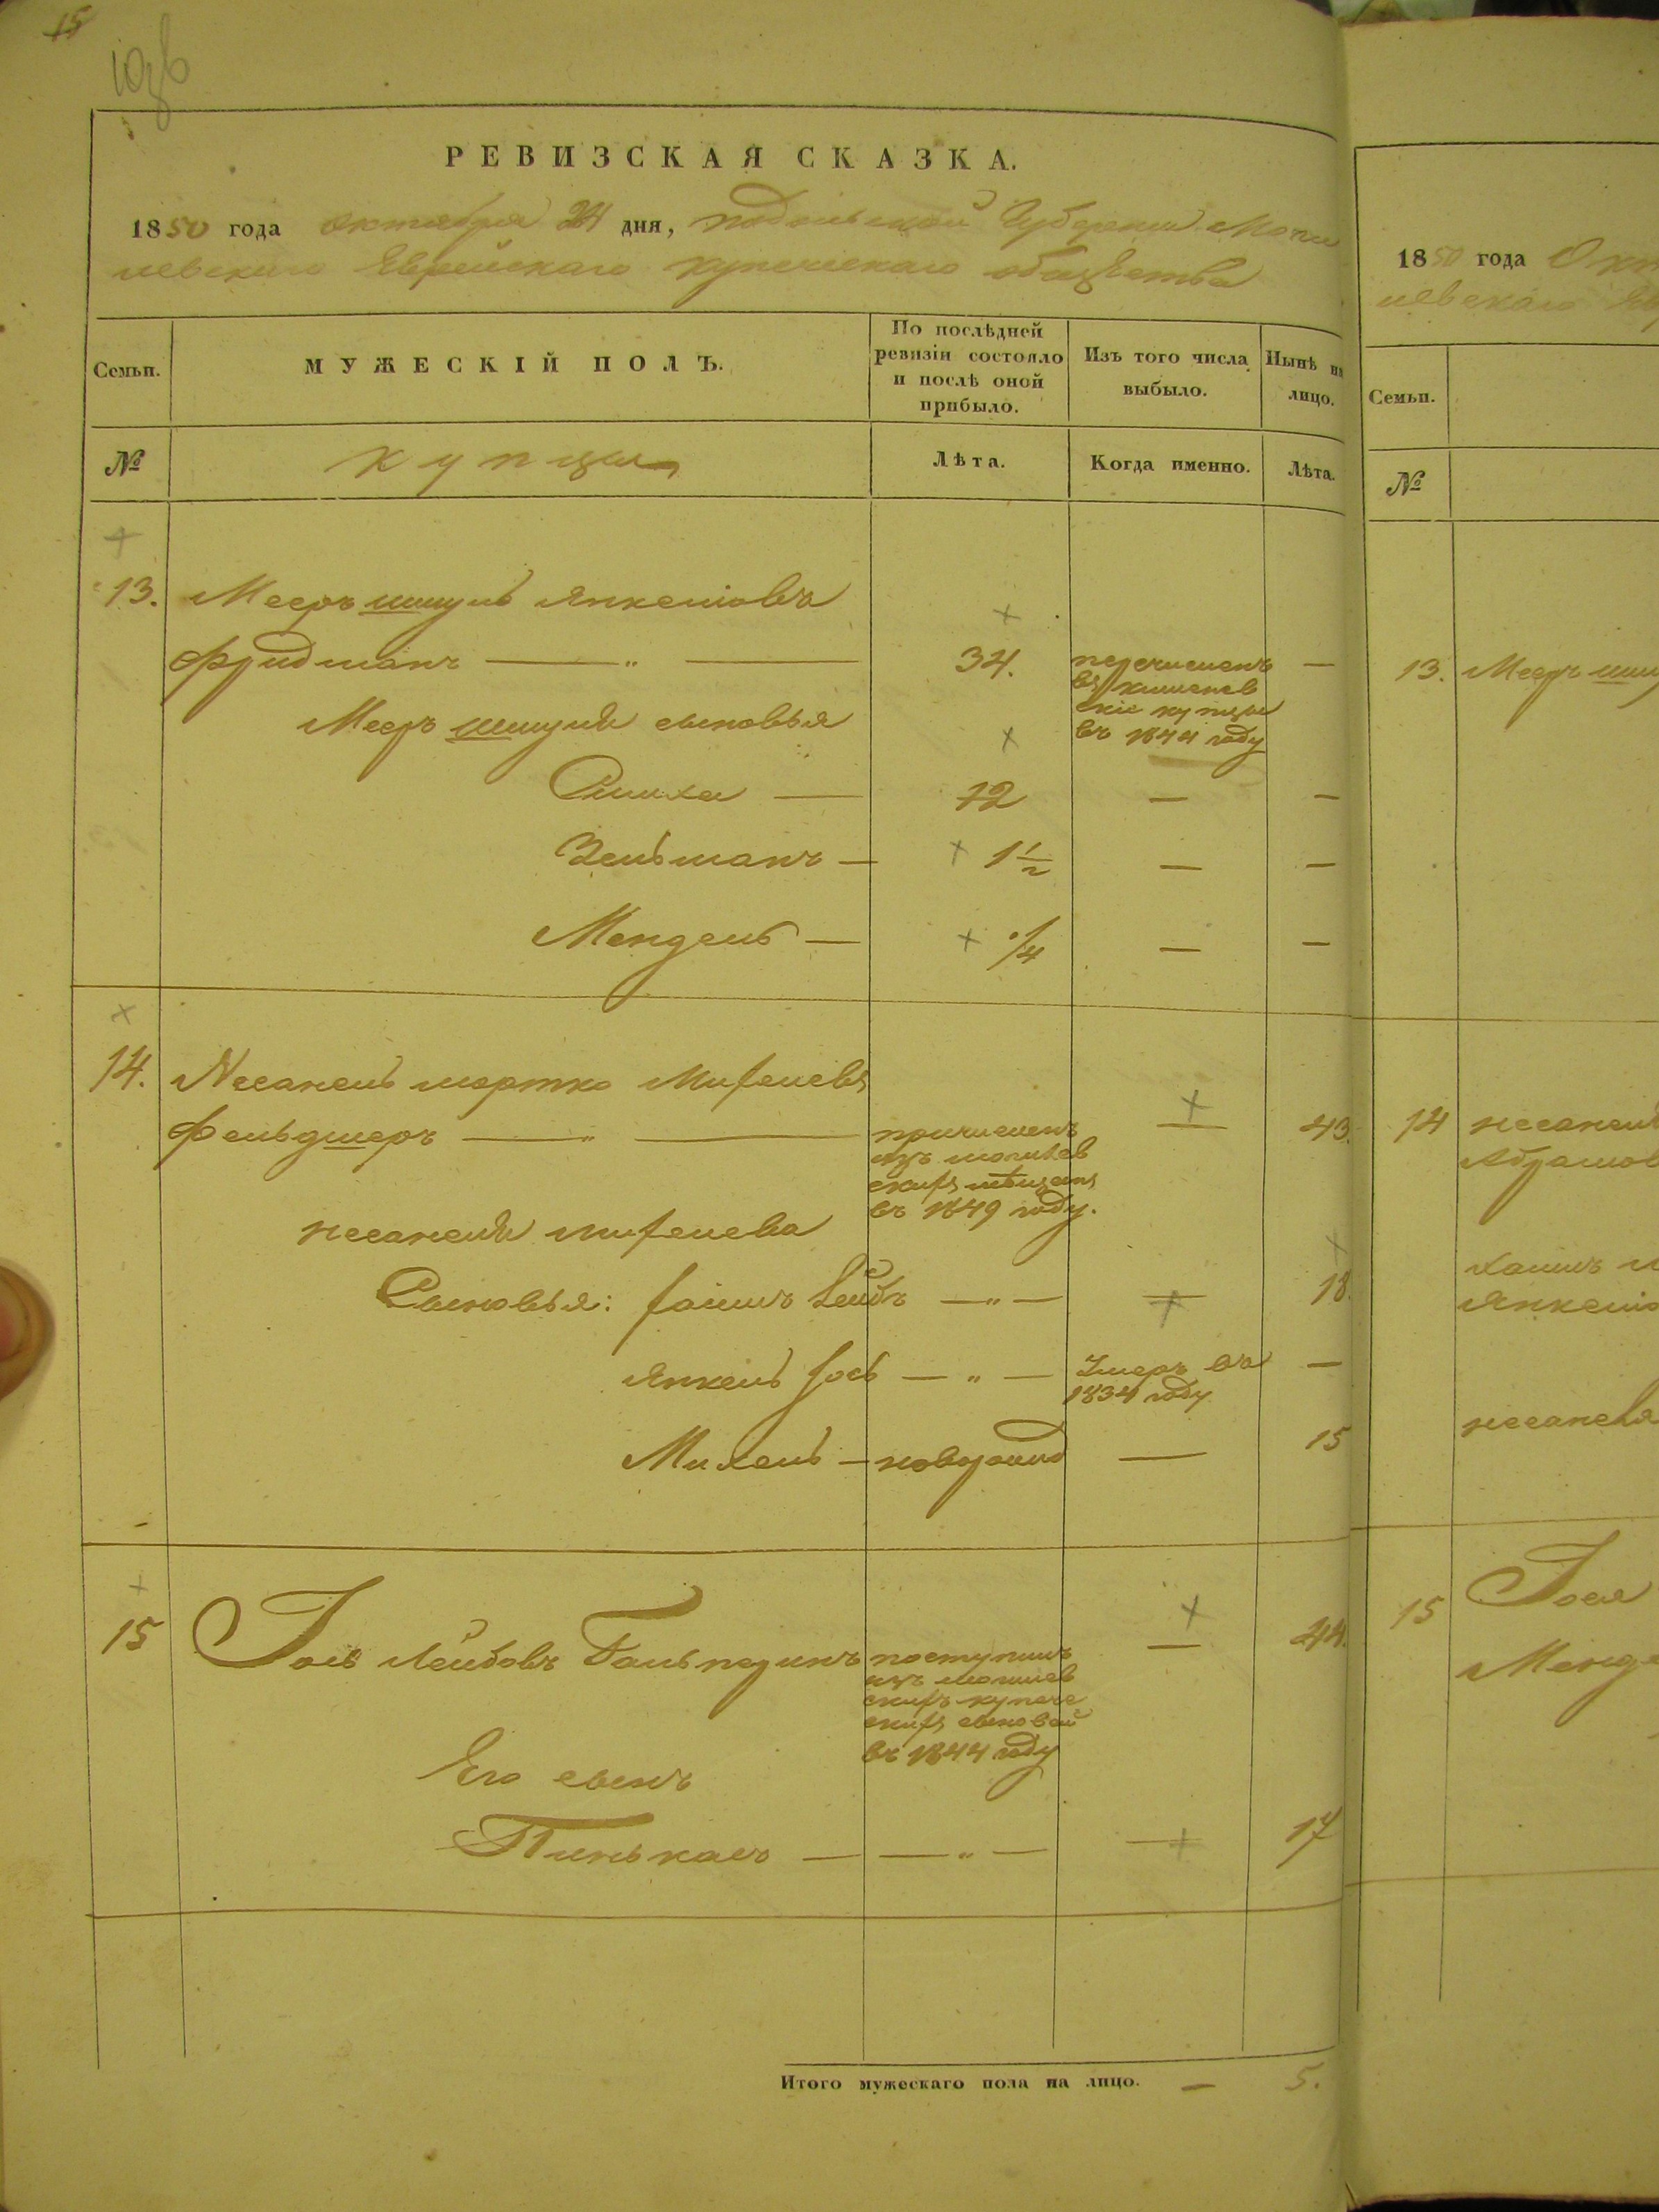 15
РЕВИЗСКАЯ СКАЗКА.
1850 года октября 24 дня, подольской Губернии Моги
левского Еврейскаго купеческаго общества
Семьи.
МУЖЕСКІЙ ПОЛЪ.
По послѣдней ревизіи состояло и послѣ оной прибыло.
Изъ того числа выбыло.
Нынѣ на лицо.
№
купцы
Лѣта.
Когда именно.
Лѣта.
13. Мееръ шмуль Янкелiовъ
Фридманъ — „ — 34. перечисленъ —
въ кишенев
скіе купцы
въ 1844 году
Мееръ шмуля сыновья
Симха — 12 — —
Зельманъ — 1½ — —
Мендель — 1/4 — —
14. Несанель мортко Михелевъ
Фельдшеръ — „ — причисленъ — 43.
изъ могилев
скихъ мѣщанъ
въ 1849 году.
несанеля михелева
Сыновья: хаимъ Лейбъ — „ — — 18.
Янкель Іось — „ — Умеръ въ —
1834 году
Михель — новорожд — 15
15 Іось Лейбовъ Гальперинъ поступилъ — 44.
изъ могилев
скихъ купече
скихъ сыновей
въ 1844 году
Его сынъ
Пинькасъ — — „ — — 17
Итого мужескаго пола на лицо. — 5.
1850 года Окт
левскаго Ев
Семьи.
№
13. Мееръ шму
14 несанель
Абрамов
хаимъ л
Янкеліо
несанеля
15 Іося
Менде